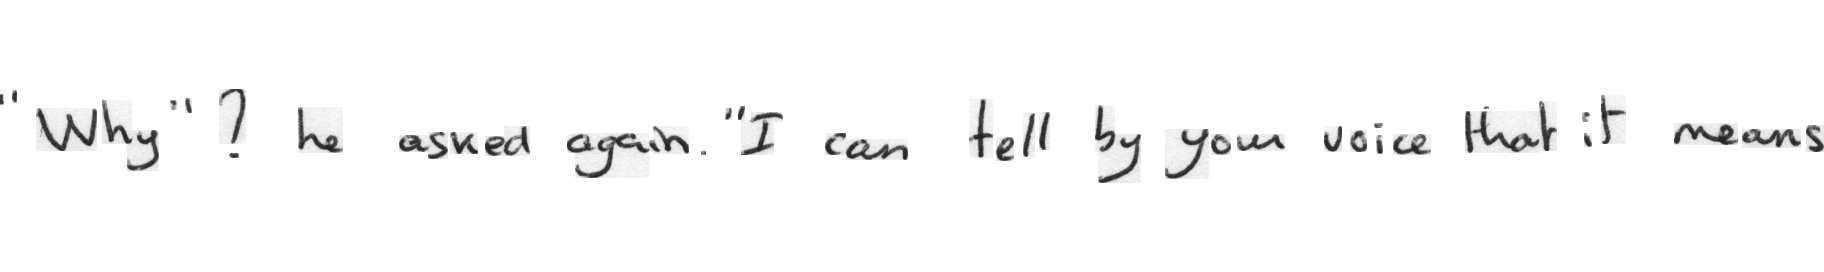 "Why"? he asked again. "I can tell by your voice that it means